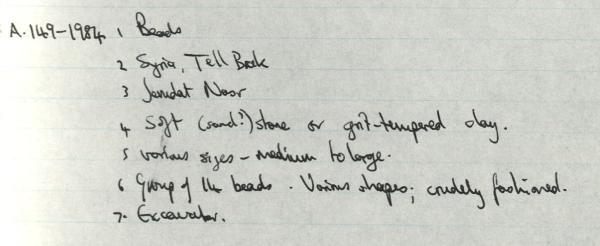 A.149-1984 1 Beads
2 Syria, Tell Brak
3 Jamdat Nasr
4 Soft (sand?) stone or grit-tempered clay.
5 various sizes - medium to large.
6 Group of 114 beads. Various shapes; crudely fashioned.
7. Excavator.